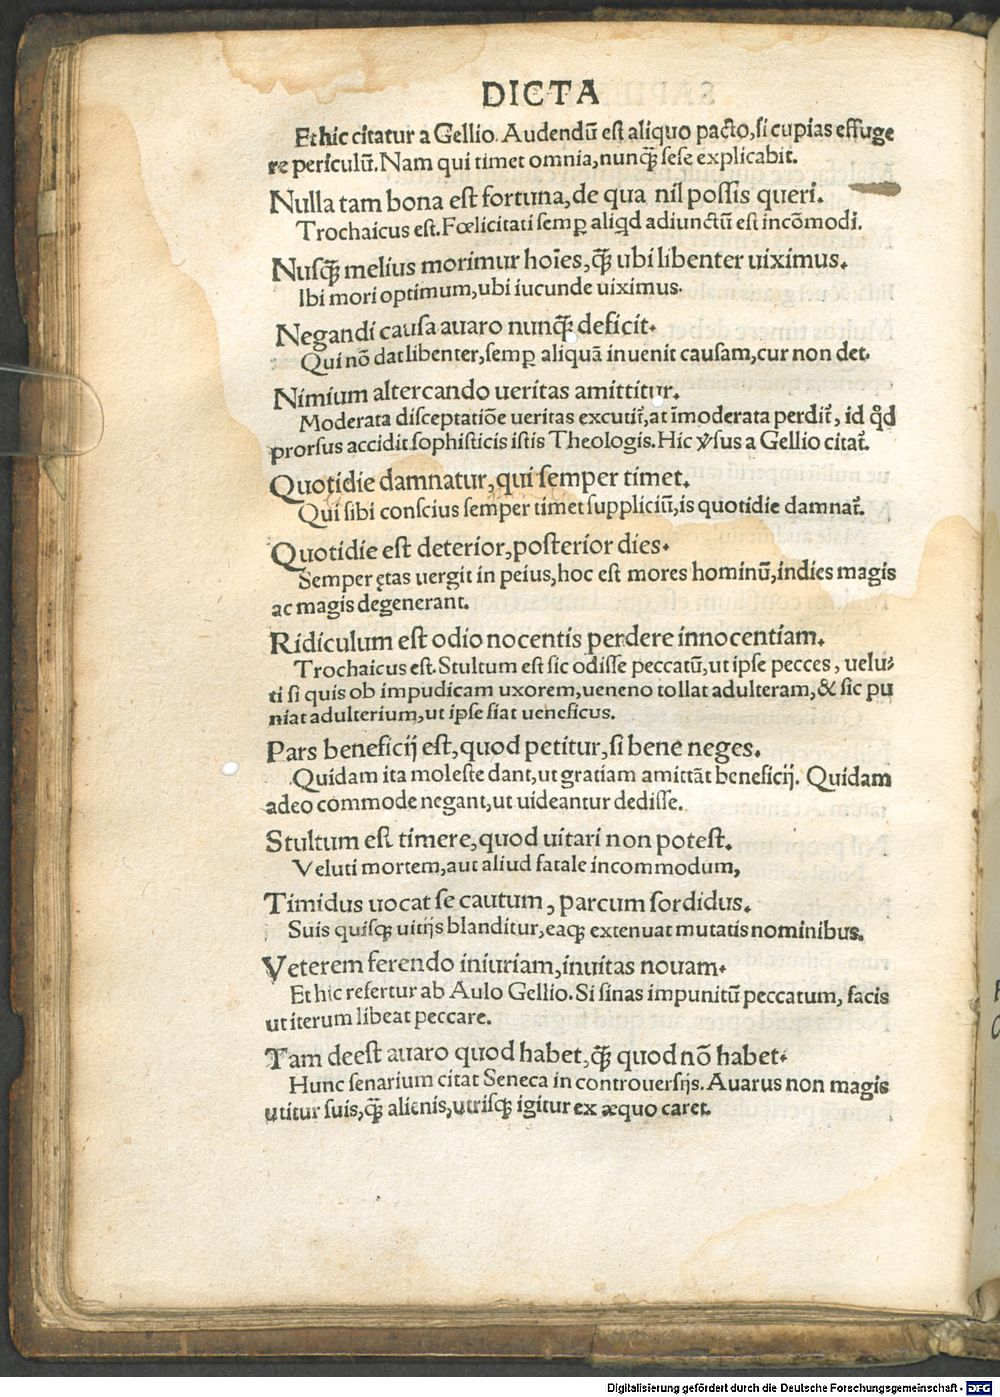 DICTA
Et hic citatur a Gellio. Audendū est aliquo pacto, si cupias effuge
re periculū. Nam qui timet omnia, nunq̄ sese explicabit.
Nulla tam bona est fortuna, de qua nil possis queri.
Trochaicus est. Fœlicitati semꝑ aliqd adiunctū est incōmodi.
Nusq̄ melius morimur hoīes, q̄ ubi libenter uiximus.
Ibi mori optimum, ubi iucunde uiximus.
Negandi causa auaro nunq̄ deficit.
Qui nō dat libenter, semꝑ aliquā inuenit causam, cur non det.
Nimium altercando ueritas amittitur.
Moderata disceptatiōe ueritas excutit̄, at īmoderata perdit̄, id qd̄
prorsus accidit sophisticis istis Theologis. Hic v̓sus a Gellio citat̄.
Quotidie damnatur, qui semper timet.
Qui sibi conscius semper timet suppliciū, is quotidie damnat̄.
Quotidie est deterior, posterior dies.
Semper ętas uergit in peius, hoc est mores hominū, indies magis
ac magis degenerant.
Ridiculum est odio nocentis perdere innocentiam.
Trochaicus est. Stultum est sic odisse peccatū, ut ipse pecces, uelu-
ti si quis ob impudicam uxorem, ueneno tollat adulteram, & sic pu
niat adulterium, ut ipse fiat ueneficus.
Pars beneficij est, quod petitur, si bene neges.
Quidam ita moleste dant, ut gratiam amittāt beneficij. Quidam
adeo commode negant, ut uideantur dedisse.
Stultum est timere, quod uitari non potest.
Veluti mortem, aut aliud fatale incommodum,
Timidus uocat se cautum, parcum sordidus.
Suis quisq; uitijs blanditur, eaq; extenuat mutatis nominibus.
Veterem ferendo iniuriam, inuitas nouam.
Et hic refertur ab Aulo Gellio. Si sinas impunitū peccatum, facis
ut iterum libeat peccare.
Tam deest auaro quod habet, q̄ quod nō habet.
Hunc senarium citat Seneca in controuersijs. Auarus non magis
utitur suis, q̄ alienis, utrisq; igitur ex æquo caret.
Digitalisierung gefördert durch die Deutsche Forschungsgemeinschaft - DFG